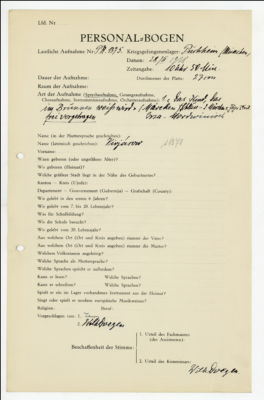 Lfd. Nr.
PERSONAL-BOGEN
Lautliche Aufnahme Nr.: PK 1075 Kriegsgefangenenlager: Puchheim (München)
Datum:
Zeitangabe: 10 Uhr 50 Min
Dauer der Aufnahme: Durchmesser der Platte: 27 cm
Raum der Aufnahme:
Art der Aufnahme (Sprechaufnahme, Gesangsaufnahme, Choraufnahme, Instrumentenaufnahme, Orchesteraufnahme): 1. Das Kind, das
im Brunnen / Märchen
frei vorgetragen Ersa-Mordwinisch
Name (in der Muttersprache geschrieben):
Name (lateinisch geschrieben):
Vorname:
Wann geboren (oder ungefähres Alter)?
Wo geboren (Heimat)?
Welche größere Stadt liegt in der Nähe des Geburtsortes?
Kanton — Kreis (Ujedz):
Department — Gouvernement (Gubernija) — Grafschaft (County):
Wo gelebt in den ersten 6 Jahren?
Wo gelebt vom 7. bis 20. Lebensjahr?
Was für Schulbildung?
Wo die Schule besucht?
Wo gelebt vom 20. Lebensjahr?
Aus welchem Ort (Ort und Kreis angeben) stammt der Vater?
Aus welchem Ort (Ort und Kreis angeben) stammt die Mutter?
Welchem Volksstamm angehörig?
Welche Sprache als Muttersprache?
Welche Sprachen spricht er außerdem?
Kann er lesen? Welche Sprachen?
Kann er schreiben? Welche Sprachen?
Spielt er ein im Lager vorhandenes Instrument aus der Heimat?
Singt oder spielt er modern europäische Musikweisen?
Religion: Beruf:
Vorgeschlagen von: 1.
1. Urteil des Fachmannes
(des Assistenten):
Beschaffenheit der Stimme:
2. Urteil des Kommissars: